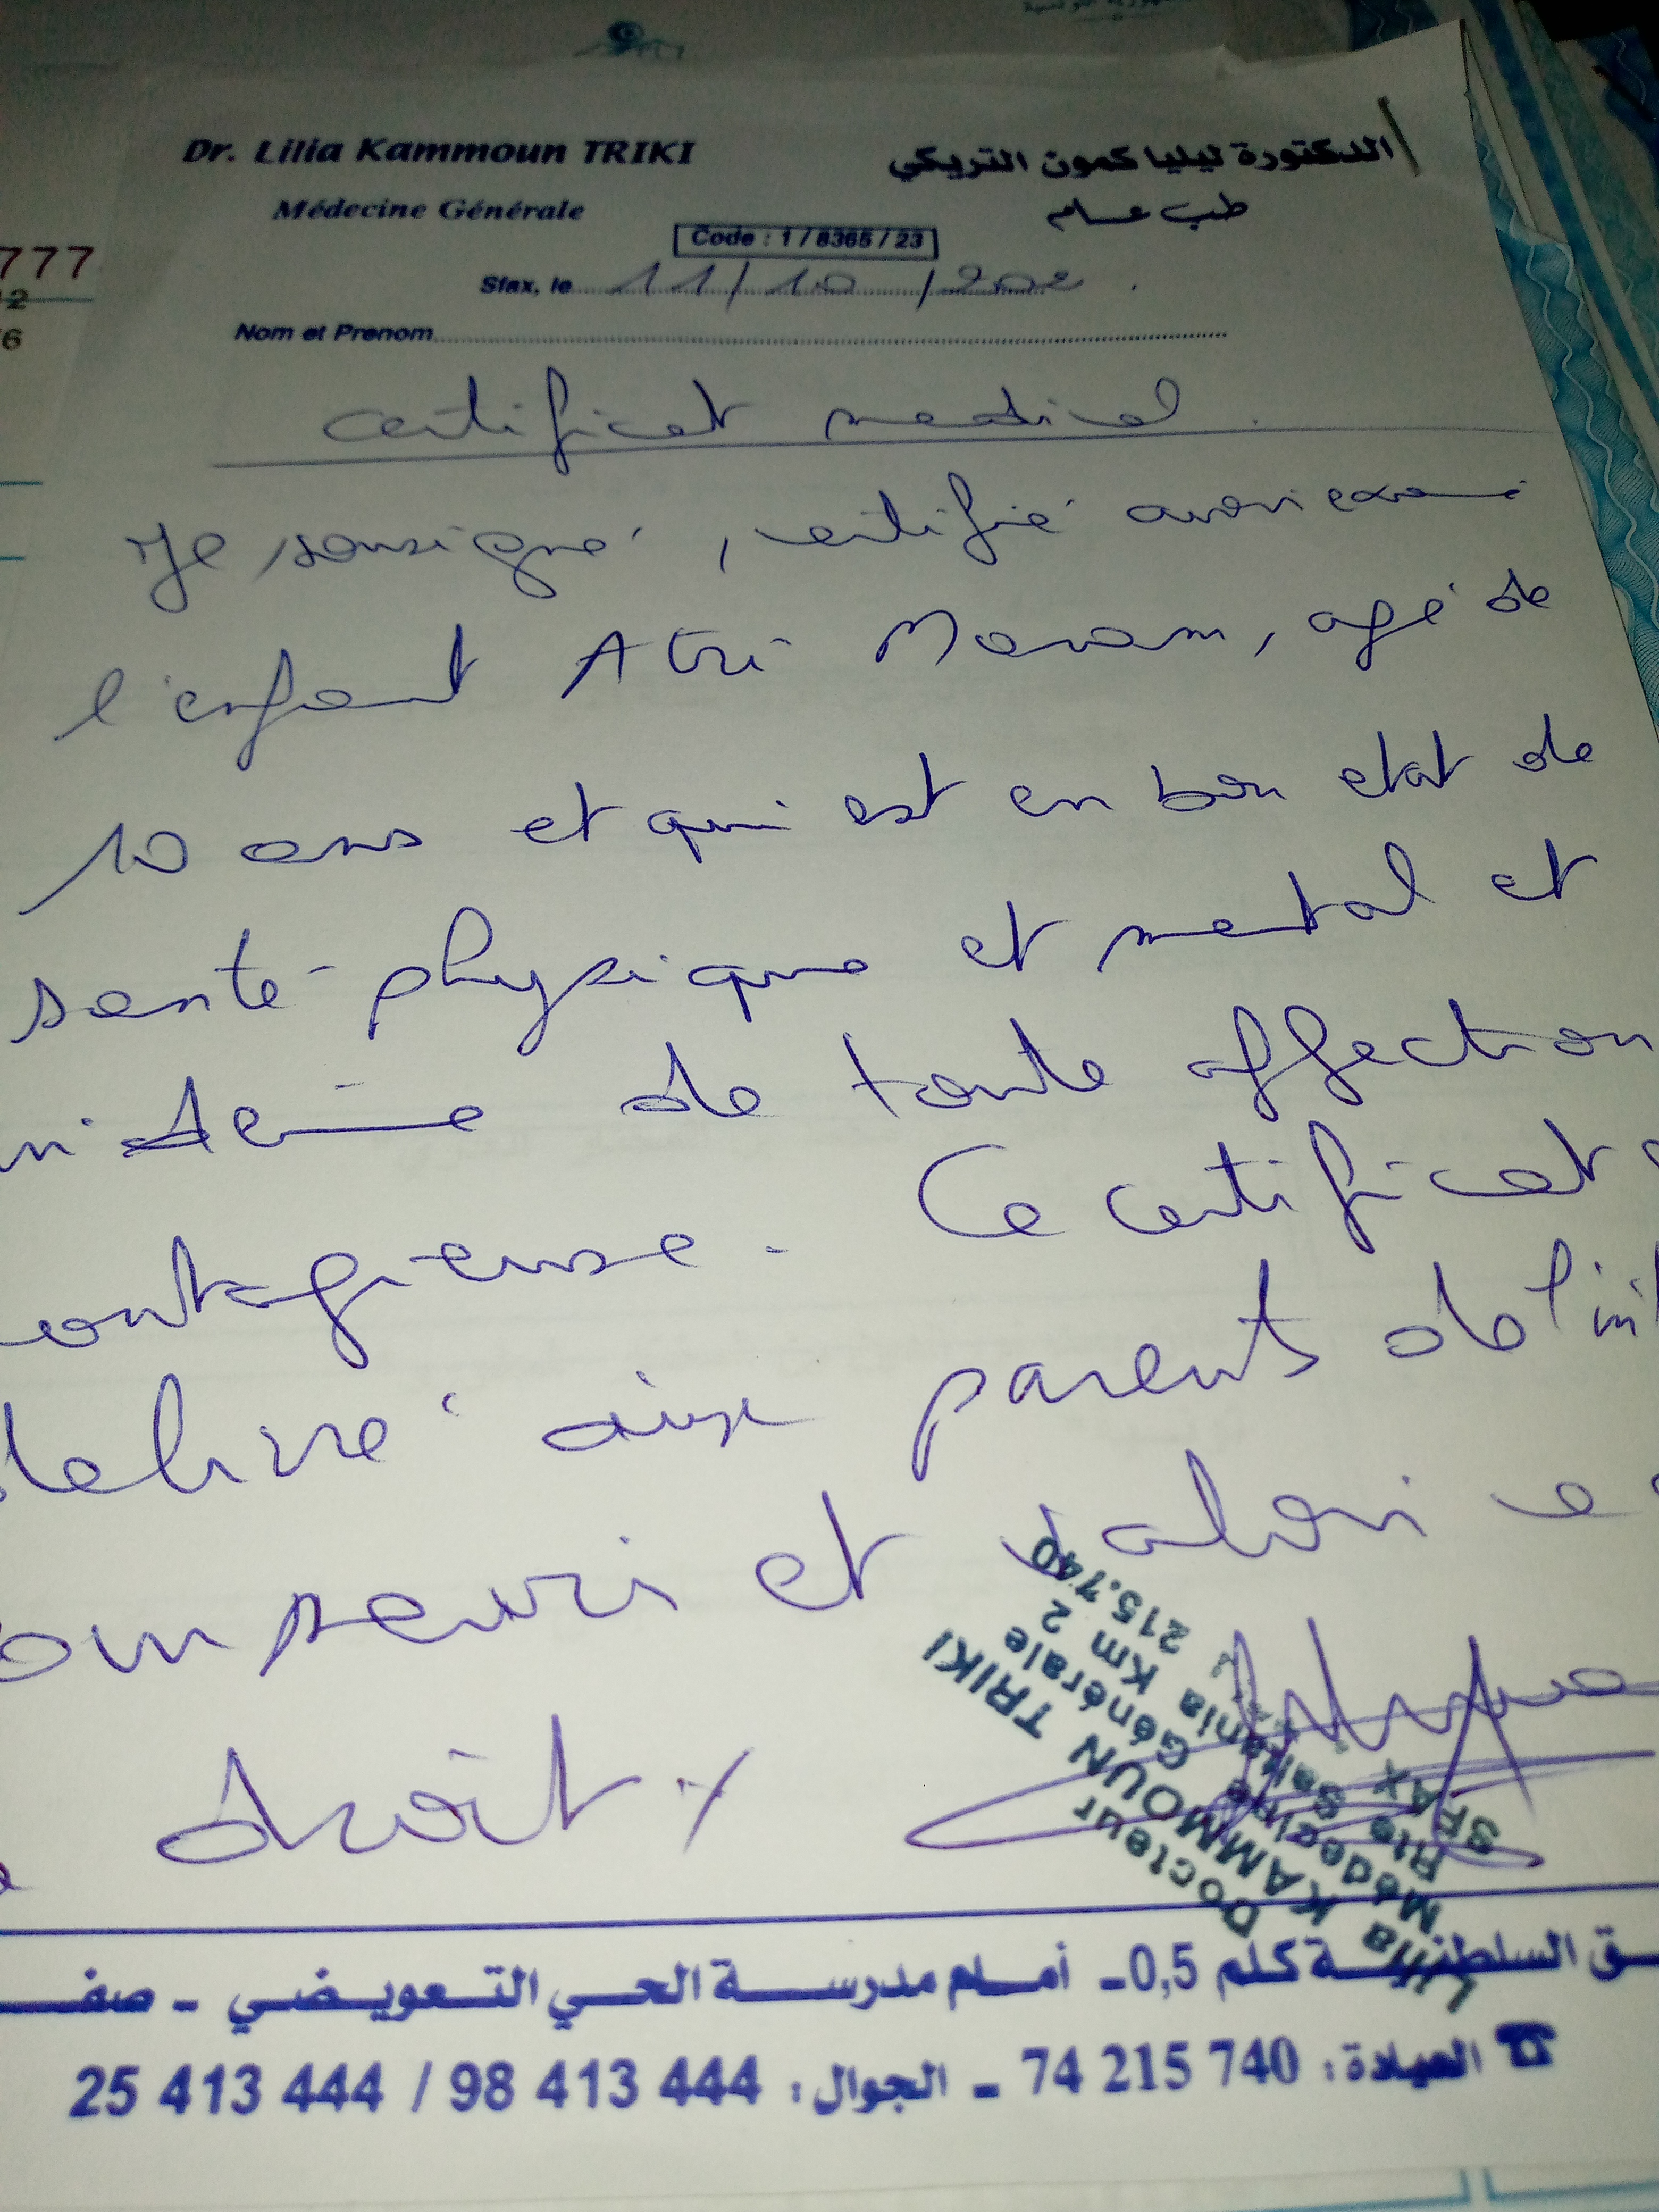 777
2
6
Dr. Lilia Kammoun TRIKI
الدكتورة ليليا كمون التريكي
Médecine Générale
طب عام
Code : 1 / 8365 / 23
Sfax, le 11/10/202
Nom et Prenom
certificat medical
Je sousigné, certifié avoir examiné
l'enfant Atri Maram, agé de
10 ans et qui est en bon etat de
santé physique et mental et
indemne de toute affection
ontagieuse. Ce certificat
delivré aux parents de l'int
our servir et valoir ce
droit
Docteur
Lilia KAMMOUN TRIKI
Médecine Générale
Rte Sakania Km 2
SFAX 215.740
ـق السلطنية كلم 0,5 ـ أمام مدرسة الحي التعويضي - صفـ
☎ العيادة: 740 215 74 ـ الجوال: 444 413 98 / 444 413 25